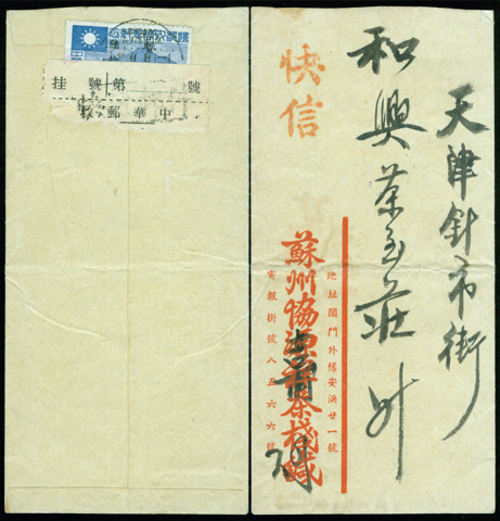 天津針市街
和興茶
莊
快信
地址閶門外楊安浜廿一號
蘇州協源祥茶棧緘
電報掛號八五六六號
挂號第 號
中華郵政